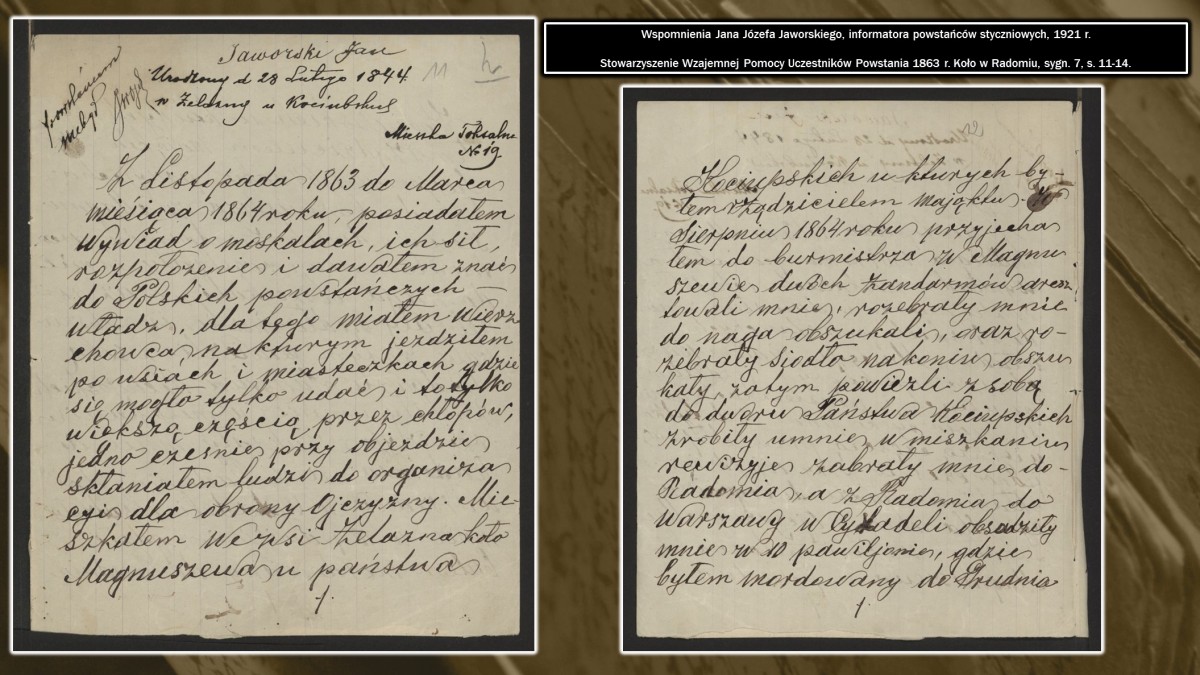 Wspomnienia Jana Józefa Jaworskiego, informatora powstańców styczniowych, 1921 r.
Stowarzyszenie Wzajemnej Pomocy Uczestników Powstania 1863 r. Koło w Radomiu, sygn. 7, s. 11-14.
Jaworski Jan
Urodzony d 28 Lutego 1844. 11
w Żelazny u Kociubskich
Mieszka Toksalna
№ 19.
Z Listopada 1863 do Marca
miesiąca 1864 roku, posiadałem
wywiad o moskalach, ich sił,
rozpołozenie i dawałem znać
do Polskich powstańczych —
władz, dla tego miałem wierz
chowca na kturym jezdziłem
po wsiach i miasteczkach gdzie
się mogło tylko udać i to tylko
większą częścią przez chłopów,
jedno czesnie przy objezdzie
skłaniałem ludzi do organiza
cyi dla obrony Ojczyzny. Mie-
szkałem we wsi Żelazna koło
Magnuszewa u państwa
1.
Kociupskich u kturych by-
łem rządzicielem majątku.
Sierpniu 1864 roku przyjecha
łem do burmistrza w Magnu
szewie dwóch żandarmów aresz
towali mnie, rozebrały mnie
do naga obszukali, oraz ro-
zebrały siodło na koniu obszu
kały, zatym powiezli z sobą
do dworu Państwa Kociupskich
zrobiły u mnie w miszkaniu
rewizyje zabrały mnie do-
Radomia, a z Radomia do
Warszawy w Cytadeli obsadziły
mnie w 10 pawiljonie, gdzie
byłem mordowany do Grudnia
1.